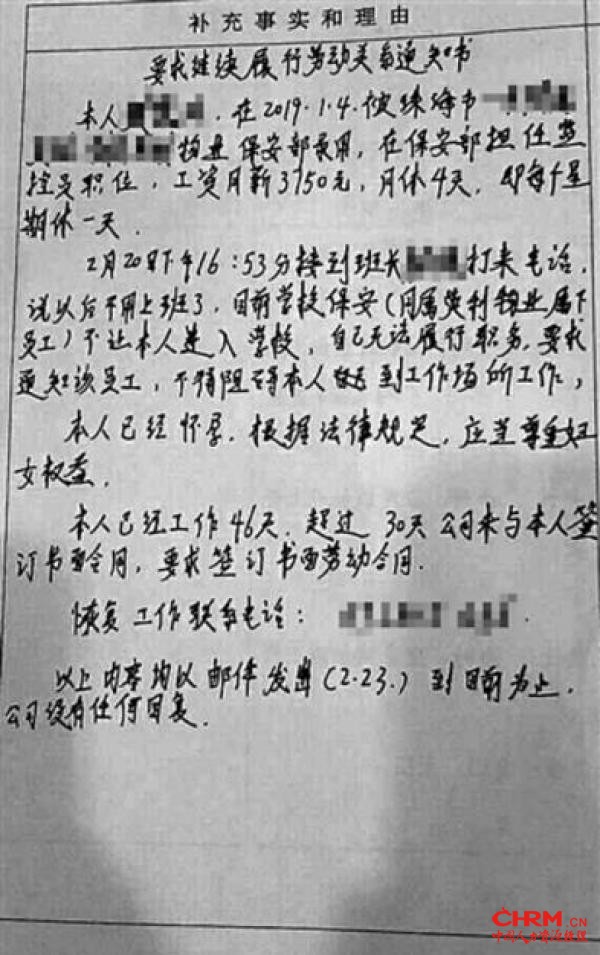 补充事实和理由
要求继续履行劳动关系通知书
本人 ,在2019.1.4.被珠海市
物业保安部录用,在保安部担任监
控员职位,工资月薪3750元,月休4天,即每个星
期休一天.
2月20日下午16:53分接到班长 打来电话,
说以后不用上班了,目前学校保安(同属 利物业属下
员工)不让本人进入学校,自己无法履行职务.要求
通知该员工,不得阻碍本人 到工作场所工作,
本人已经怀孕.根据法律规定,应当尊重妇
女权益.
本人已经工作46天.超过30天公司未与本人签
订书面合同,要求签订书面劳动合同.
恢复工作联系电话: .
以上内容均以邮件发出(2.23.)到目前为止,
公司没有任何回复.
CHRM.CN